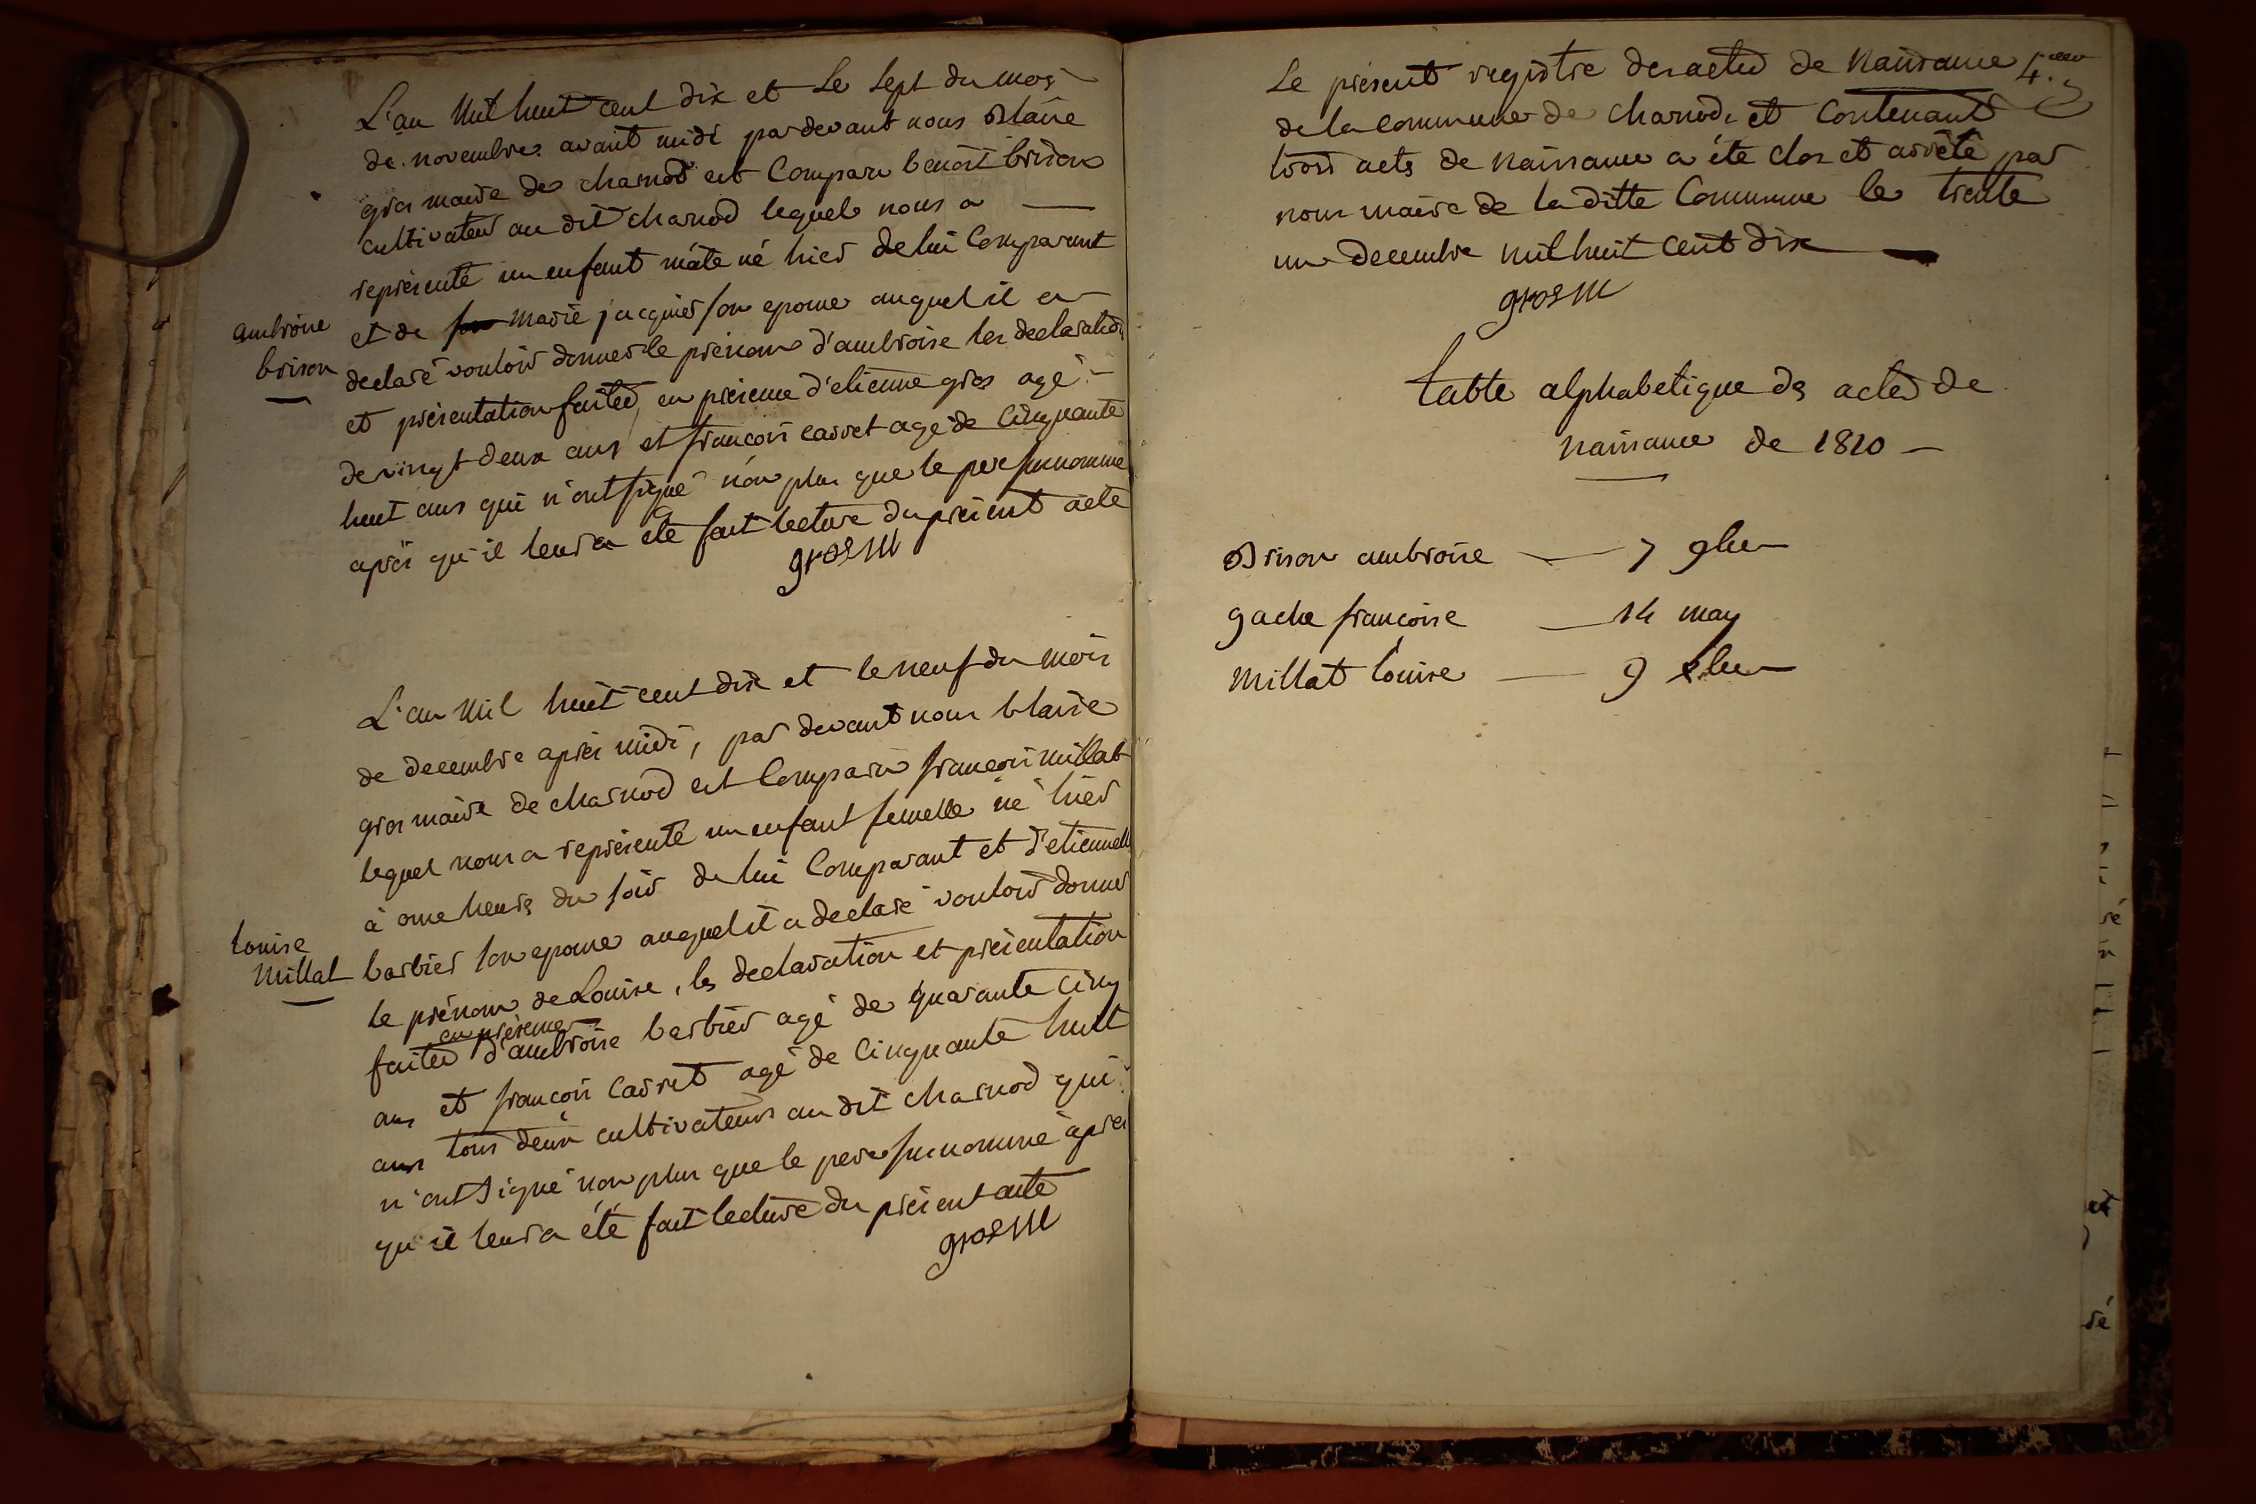 L'an mil huit cent dix et le sept du mois
de novembre avant midi par devant nous Blaise
gros maire de charnod est comparu benoit brison
cultivateur au dit charnod lequel nous a
représenté un enfant mâle né hier de lui comparant
et de marie jacquier son epouse auquel il a
ambroise
brison
declaré vouloir donner le prénom d'ambroise les declaration
et présentation faites en présence d'etienne gros agé
de vingt deux ans et francois carret agé de cinquante
huit ans qui n'ont signé non plus que le pere susnommé
après qu'il leur a été fait lecture du présent acte
gros m
L'an mil huit cent dix et le neuf du mois
de decembre après midi, par devant nous blaise
gros maire de charnod est comparu francois millat
lequel nous a représenté un enfant femelle né hier
à onze heures du soir de lui comparant et d'etiennette
louise
millat
barbier son epouse auquel il a declaré vouloir donner
le prénom de Louise, les declaration et présentation
en présence
faites d'ambroise barbier agé de quarante cinq
ans et francois carret agé de cinquante huit
ans tous deux cultivateurs au dit charnod qui
n'ont signé non plus que le pere susnommé après
qu'il leur a été fait lecture du présent acte
gros m
Le présent registre des actes de naissance
de la commune de charnod et contenant
trois acts de naissance a été clos et arrêté par
nous maire de la ditte commune le trente
un decembre mil huit cent dix
gros m
table alphabetique des actes de
naissance de 1810
Brison ambroise — 7 9bre
gache francoise — 14 may
millat louise — 9 xbre